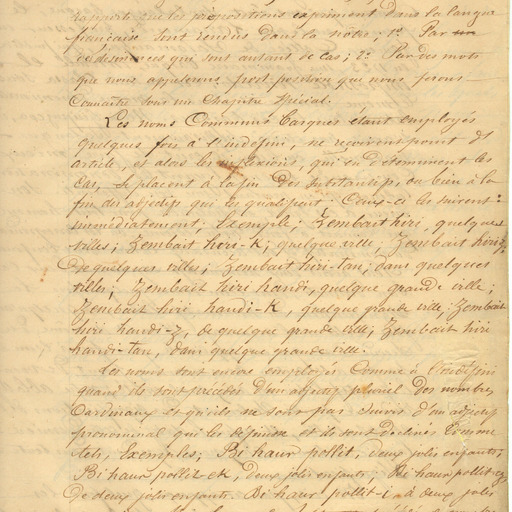 rapports que les prépositions expriment dans la langue
française sont rendus dans la nôtre, 1º Par
désinences qui sont autant de Cas; 2º Par des mots
que nous appelerons post-position que nous ferons
Connaître sous un Chapitre Spécial.
Les noms Communs basques étant employés
quelques fois à l'indéfini, ne reçoivent point d'
article, et alors les inflexions, qui en déterminent les
Cas, se placent à la fin des substantifs, ou bien à la
fin des adjectifs qui les qualifient. Ceux-ci les suivent
immédiatement; Exemple: Zembait hiri, quelques
villes; Zembait hiri-k, quelque ville; Zembait hiri-z,
de quelques villes; Zembait hiri-tan, dans quelques
villes; Zembait hiri handi, quelque grande ville;
Zembait hiri handi-k, quelque grande ville; Zembait
hiri handi-z, de quelque grande ville; Zembait hiri
handi-tan, dans quelque grande ville.
Les noms sont encore employés Comme à l'indéfini
quand ils sont précédés d'un adjectif pluriel des nombres
Cardinaux et qu'ils ne sont pas suivis d'un adjectif
pronominal qui les définisse et ils sont déclinés Comme
tels, Exemples; Bi haur pollit, deux jolis enfants;
Bi haur pollit-ek, deux jolis enfants; Bi haur pollit-ez
de deux jolis enfants. Bi haur pollit-i, à deux jolis